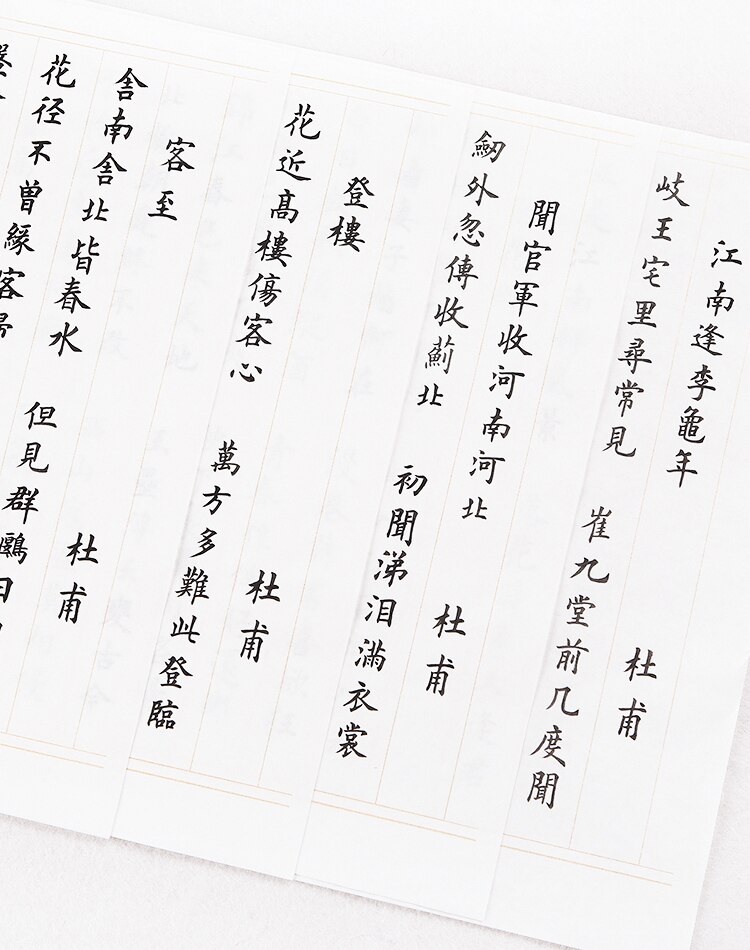 江南逢李龜年 杜甫
岐王宅里尋常見 崔九堂前几度聞
聞官軍收河南河北 杜甫
劒外忽傳收薊北 初聞涕泪滿衣裳
登樓 杜甫
花近高樓傷客心 萬方多難此登臨
客至 杜甫
舍南舍北皆春水 但見群鷗日
花径不曾緣客